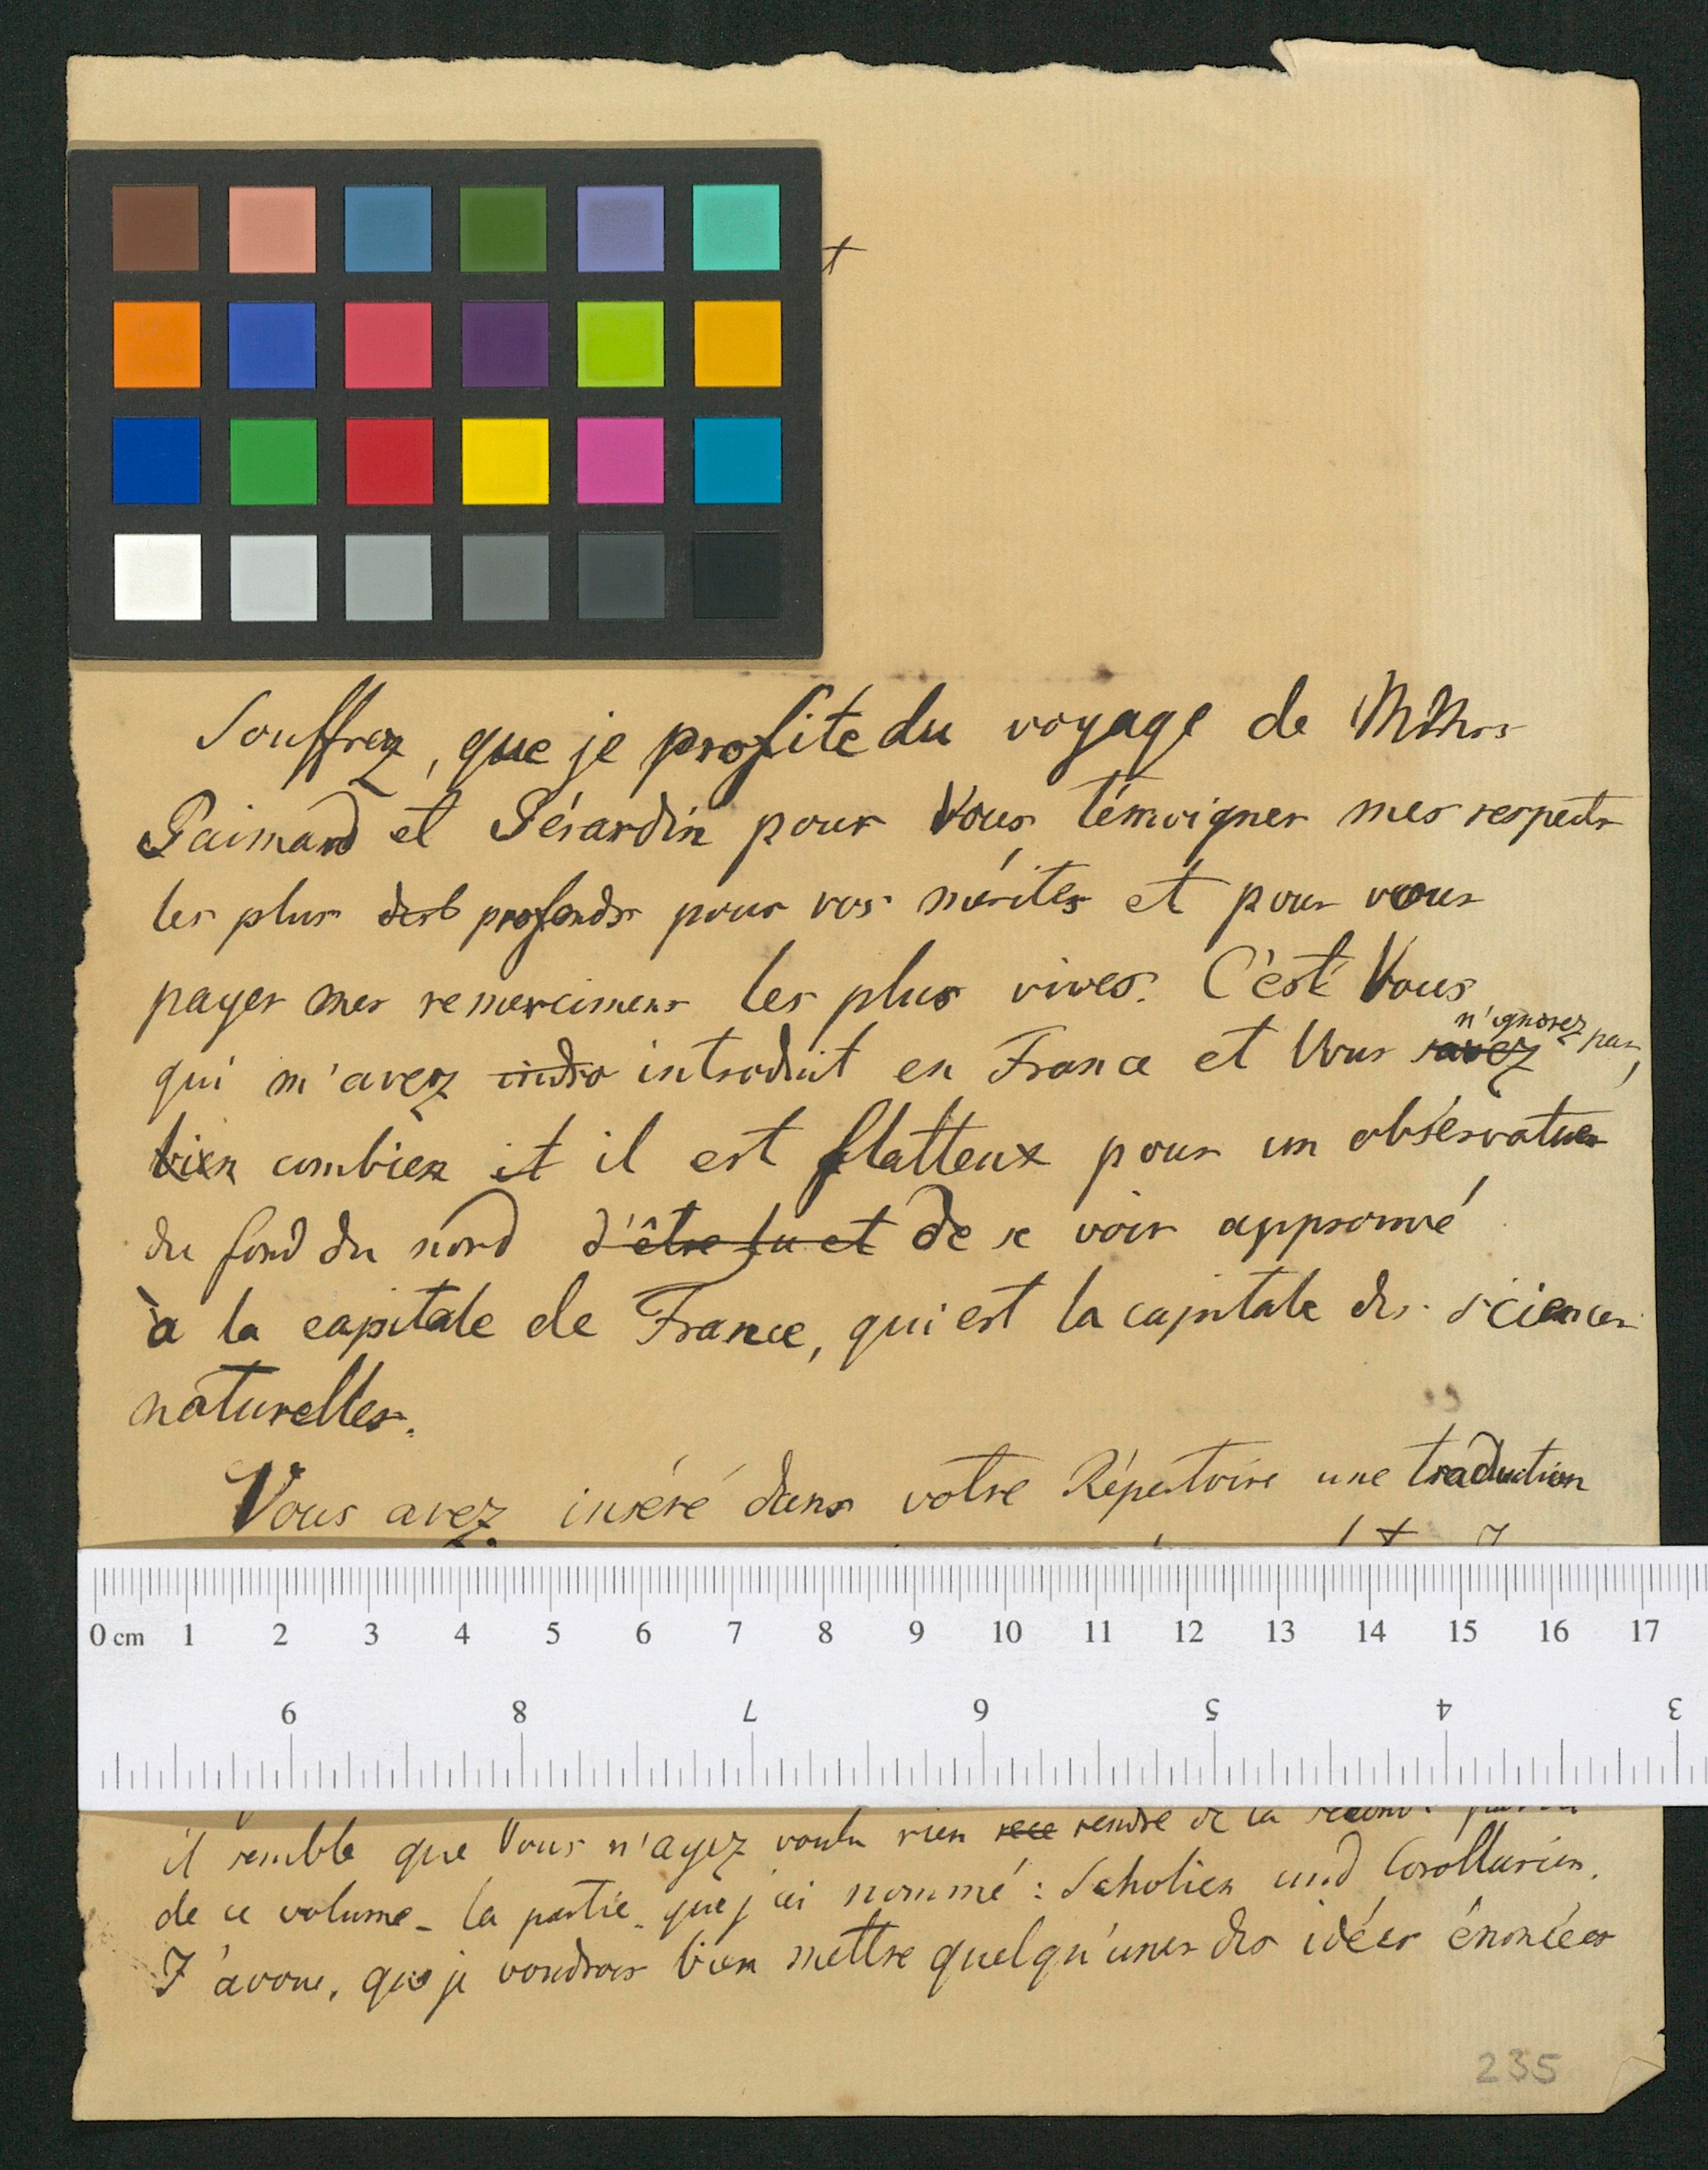 t
Souffrez, que je profite du voyage de MMrs
Gaimard et Gérardin pour Vous témoigner mes respects
les plus dist profonds pour vos mérites et pour vous
payer mes remercimens les plus vives. C'est Vous
n'ignorez pas,
qui m'avez indro introduit en France et Vous savez
bien combien it il est flatteux pour un observateur
du fond du nord d'être lu et de se voir approuvé
à la capitale de France, qui est la capitale des sciences
naturelles.
Vous avez inséré dans votre Répertoire une traduction
0 cm 1 2 3 4 5 6 7 8 9 10 11 12 13 14 15 16 17
9 8 7 6 5 4 3
il semble que Vous n'ayez voulu rien rece rendre de la seconde partie
de ce volume - la partie que j'ai nommé: Scholien und Corollarien.
J'avoue, que je voudrois bien mettre quelqu'unes des idées énoncées
235